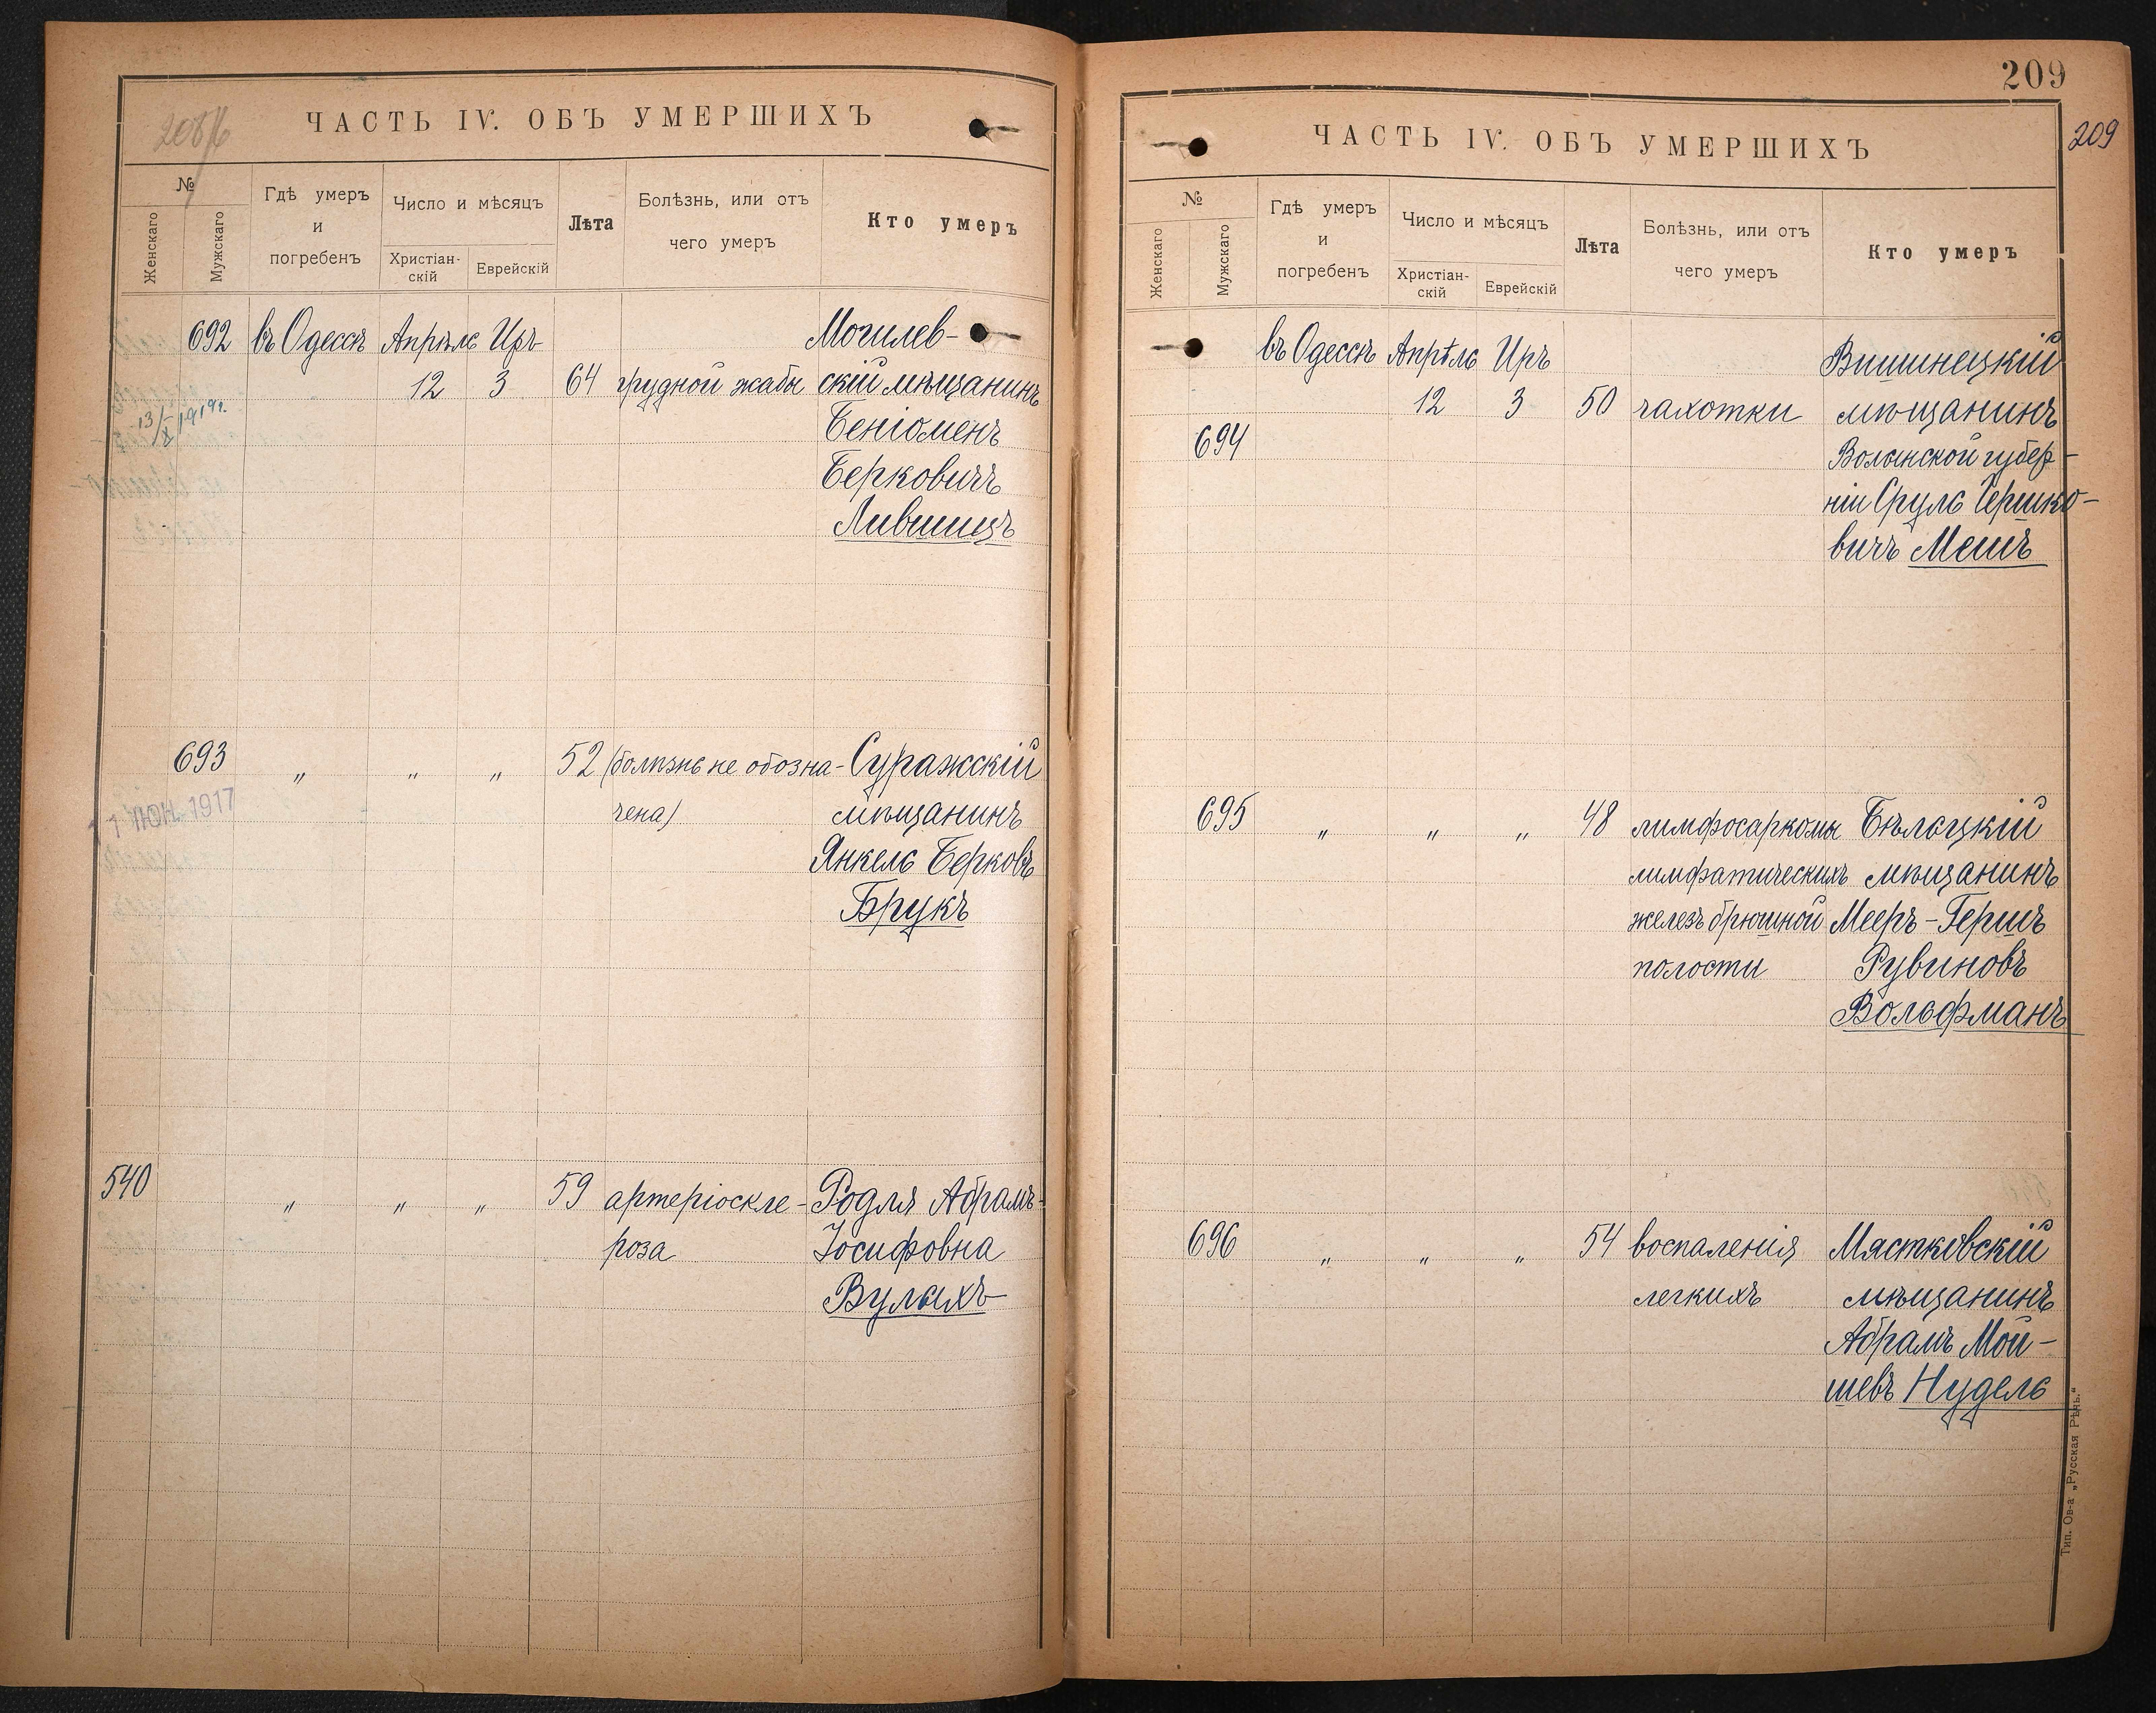 ЧАСТЬ IV. ОБЪ УМЕРШИХЪ
№
Женскаго
Мужскаго
Гдѣ умеръ
и
погребенъ
Число и мѣсяцъ
Христіан-
скій
Еврейскій
Лѣта
Болѣзнь, или отъ
чего умеръ
Кто умеръ
692 въ Одессѣ Апрѣль Иръ Могилев-
12 3 64 грудной жабы скій мѣщанинъ
1919г. Беніоменъ
Берковичъ
Лившицъ
693 " " " 52 (болѣзнь не обозна- Суражскій
чена) мѣщанинъ
1917
Янкель Берковъ
Брукъ
540 " " " 59 артеріоскле- Родля Абрамъ-
роза Іосифовна
Вулахъ
209
209
ЧАСТЬ IV. ОБЪ УМЕРШИХЪ
№
Женскаго
Мужскаго
Гдѣ умеръ
и
погребенъ
Число и мѣсяцъ
Христіан-
скій
Еврейскій
Лѣта
Болѣзнь, или отъ
чего умеръ
Кто умеръ
въ Одессѣ Апрѣль Иръ Вишнецкій
12 3 50 чахотки мѣщанинъ
694 Волынской губер-
ніи Сруль Гершко-
вичъ Мешъ
695 " " " 48 лимфосаркомы Бѣльцкій
лимфатическихъ мѣщанинъ
железъ брюшной Мееръ-Гершъ
полости Рувиновъ
Вольфманъ
696 " " " 54 воспаленія Мястковскій
легкихъ мѣщанинъ
Абрамъ Мой-
шевъ Нудель
Тип. Ов-а „Русская Рѣчь.“